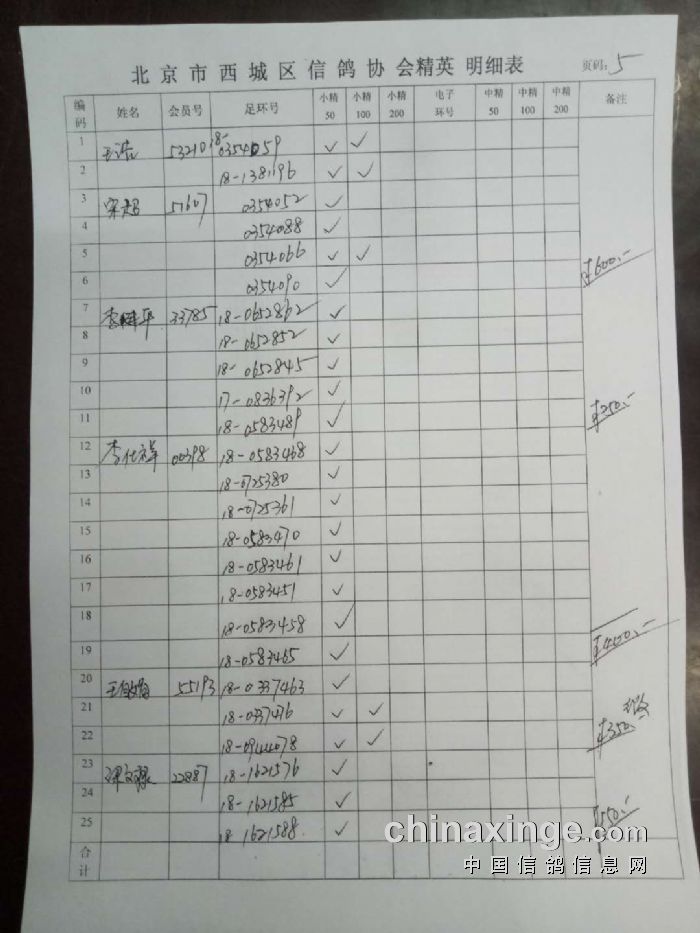 北京市西城区信鸽协会精英 明细表
页码: 5
编码 姓名 会员号 足环号 小精50 小精100 小精200 电子环号 中精50 中精100 中精200 备注
1 532101 18-0354059 ✓ ✓
2 18-1381196 ✓ ✓
3 宋超 51607 0354052 ✓
4 0354088 ✓
5 0354066 ✓ ✓
6 0354090 ✓ ¥600.-
7 33785 18-0652862 ✓
8 18-0652852 ✓
9 18-0652845 ✓
10 17-0836392 ✓
11 18-0583489 ✓ ¥250.-
12 李仕祥 00398 18-0583468 ✓
13 18-0725380 ✓
14 18-0725361 ✓
15 18-0583470 ✓
16 18-0583461 ✓
17 18-0583451 ✓
18 18-0583458 ✓
19 18-0583465 ✓ ¥400.-
20 55193 18-0337463 ✓
21 18-0337436 ✓ ✓
22 18-0944078 ✓ ✓ ¥350
23 22887 18-1621576 ✓
24 18-1621585 ✓
25 18 1621588 ✓ ¥150.-
合计
chinaxinge.com
中国信鸽信息网